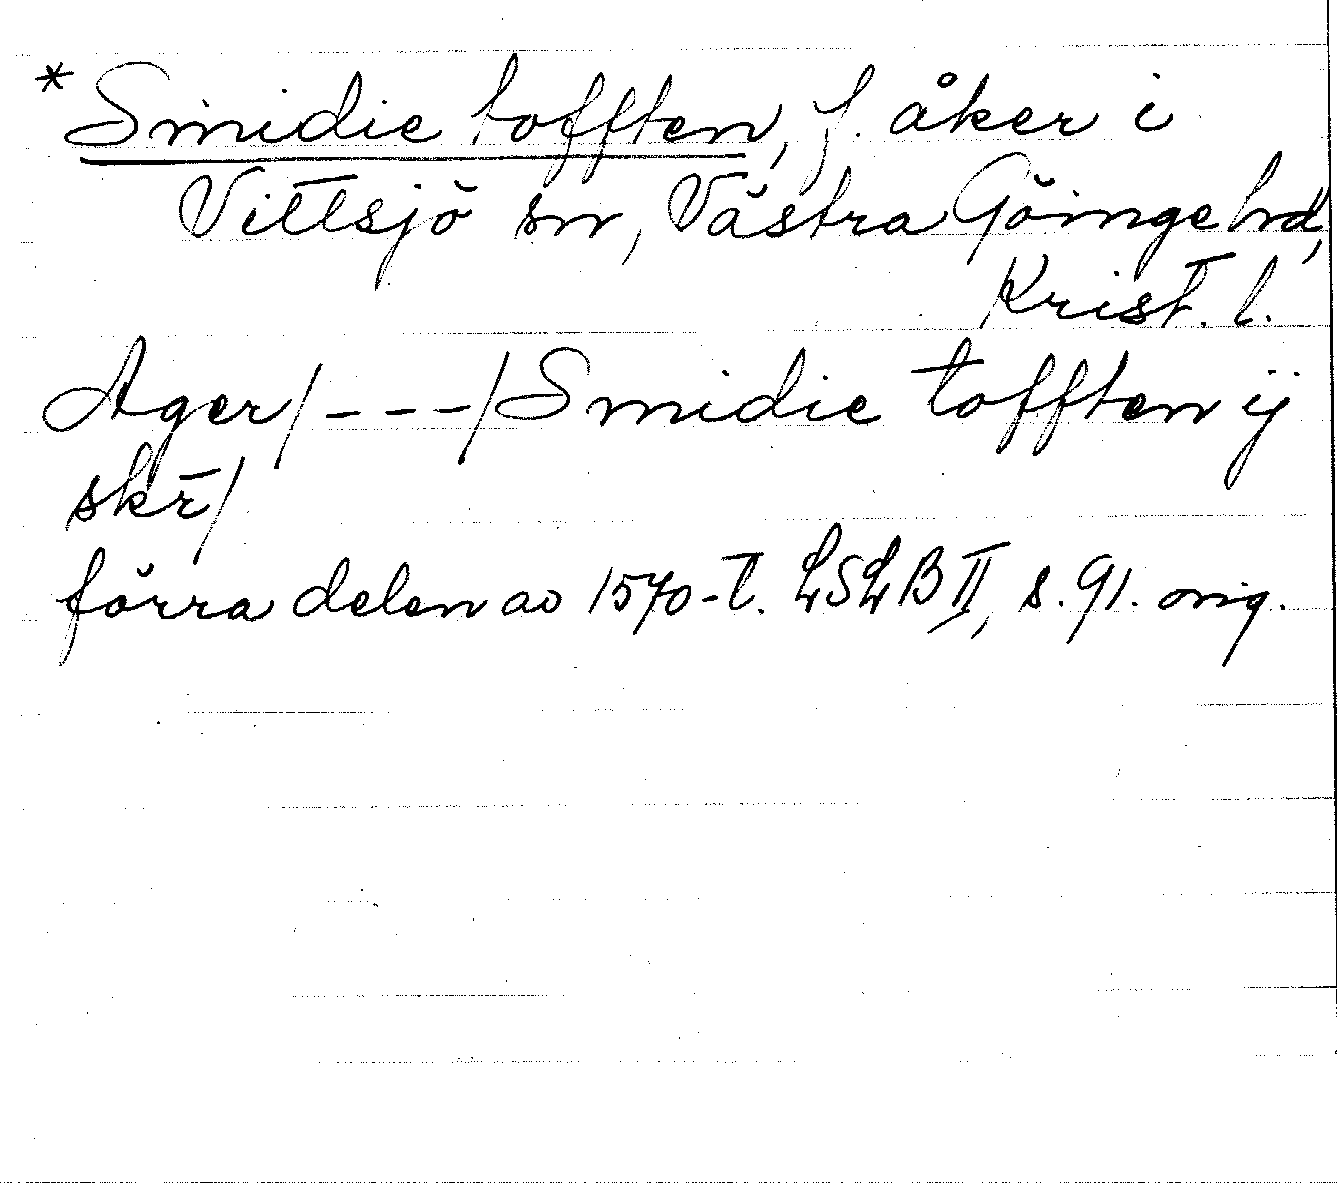 * Smidie tofften, f. åker i
Vittsjö sn, Västra Göinge hd,
Krist. l.
Ager/---/Smidie tofften ij
skr̄/
förra delen av 1570-t. LSLB II, s. 91. orig.